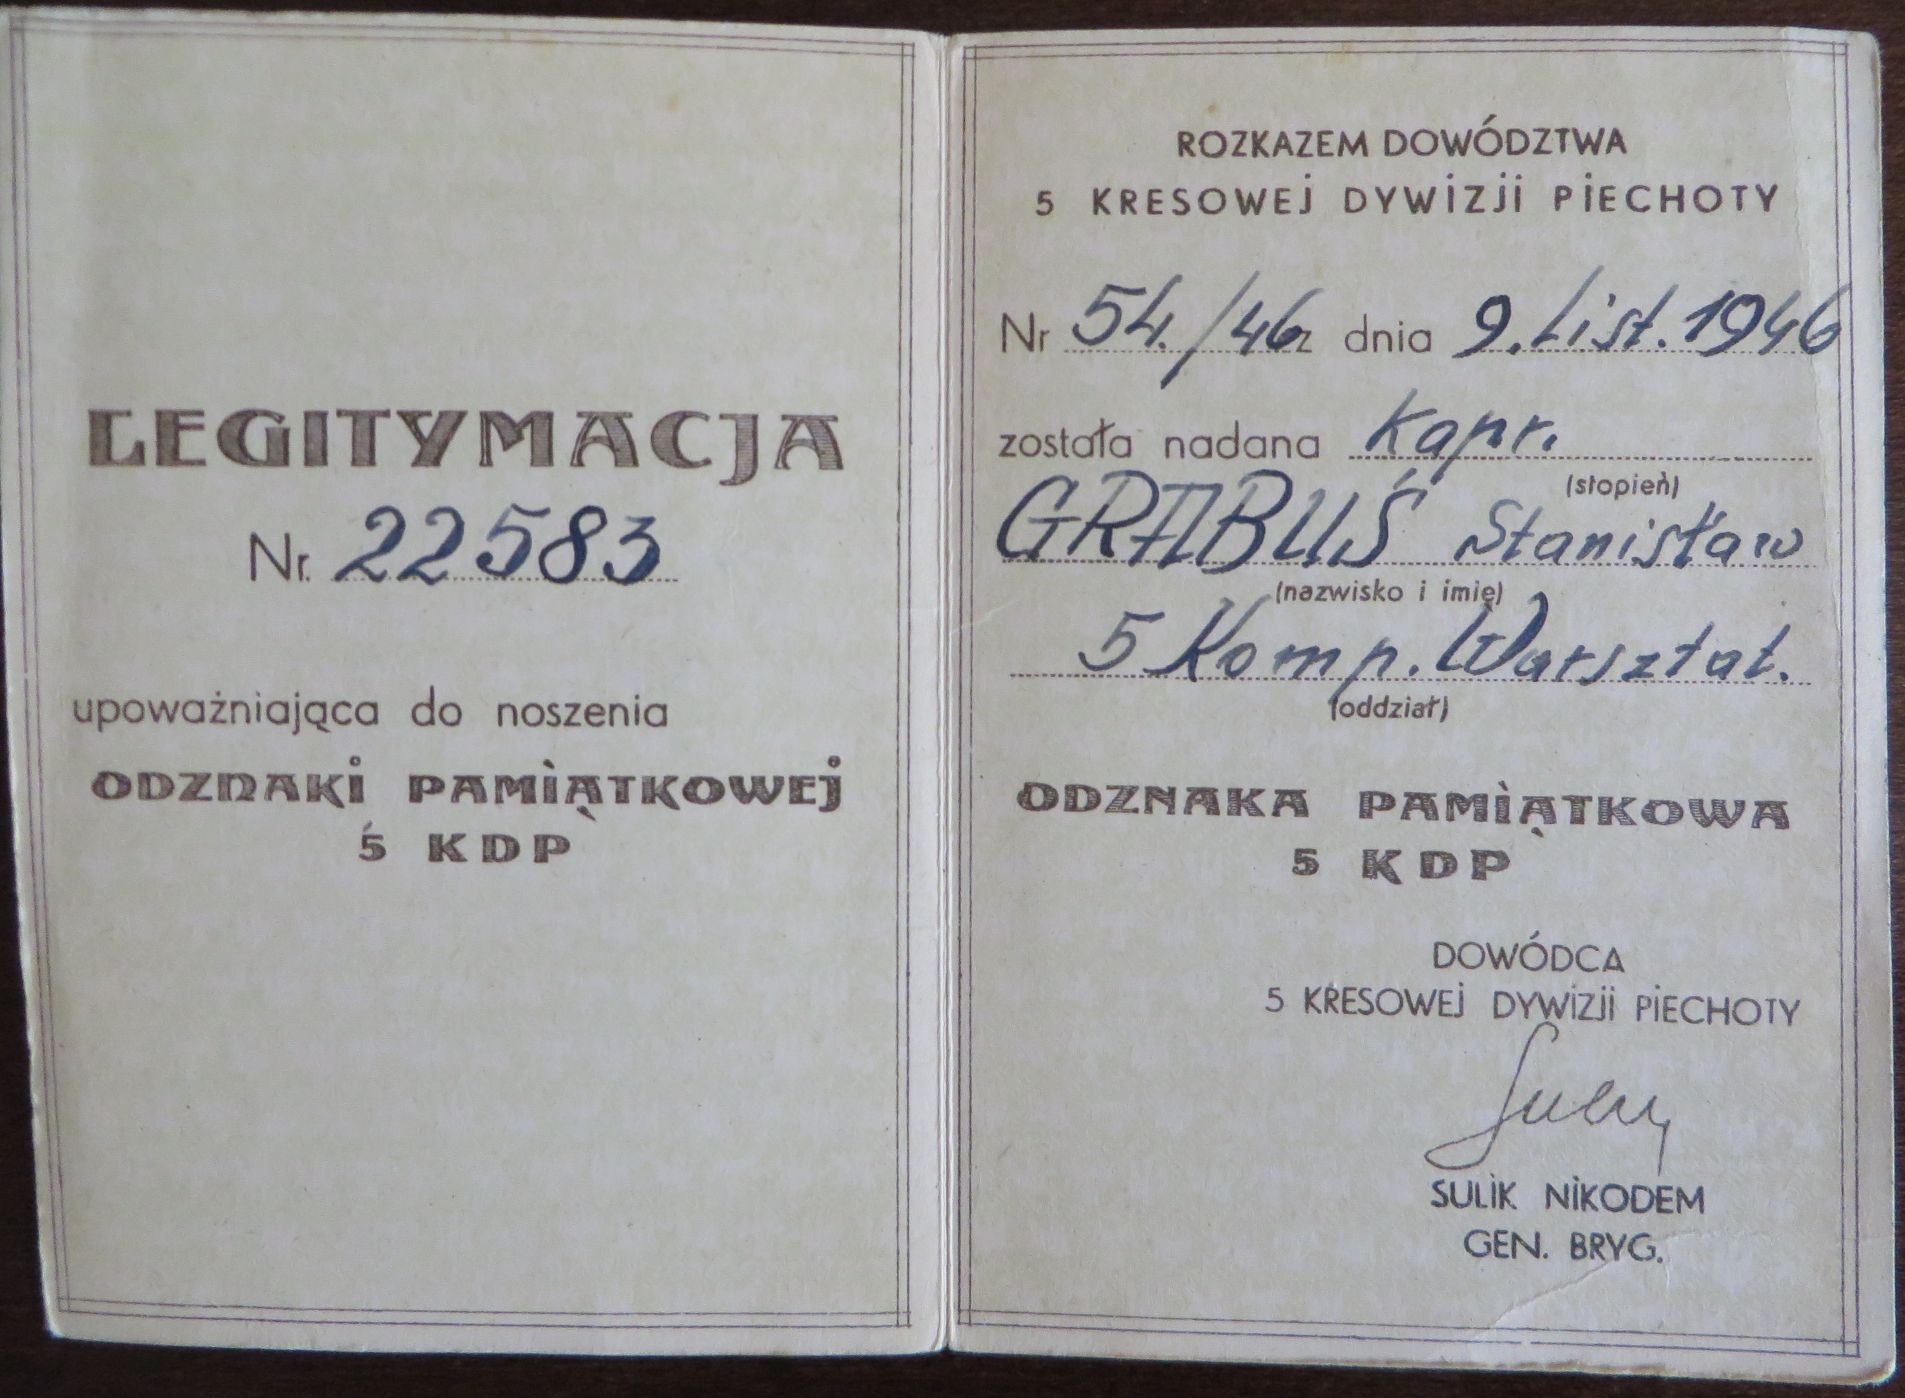 LEGITYMACJA
Nr. 22583
upoważniająca do noszenia
ODZNAKI PAMIĄTKOWEJ
5 KDP
ROZKAZEM DOWÓDZTWA
5 KRESOWEJ DYWIZJI PIECHOTY
Nr 54./46 z dnia 9. List. 1946
została nadana kapr.
(stopień)
GRABUŚ Stanisław
(nazwisko i imię)
5 Komp. Warsztat.
(oddział)
ODZNAKA PAMIĄTKOWA
5 KDP
DOWÓDCA
5 KRESOWEJ DYWIZJI PIECHOTY
SULIK NIKODEM
GEN. BRYG.